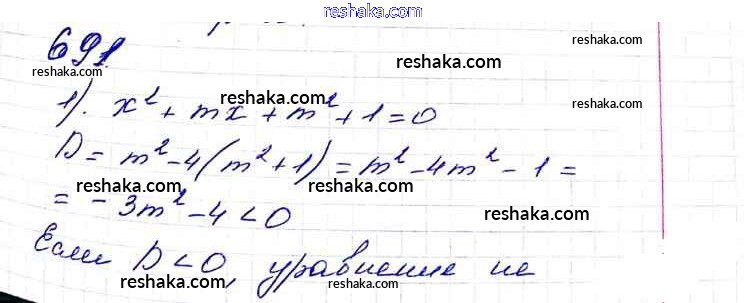 reshaka.com
691
reshaka.com
reshaka.com
1). x² + mx + m² + 1 = 0
reshaka.com
reshaka.com
D = m² - 4(m² + 1) = m² - 4m² - 1 =
reshaka.com
reshaka.com
= - 3m² - 4 < 0
reshaka.com
Если D < 0, уравнение не
reshaka.com
reshaka.com